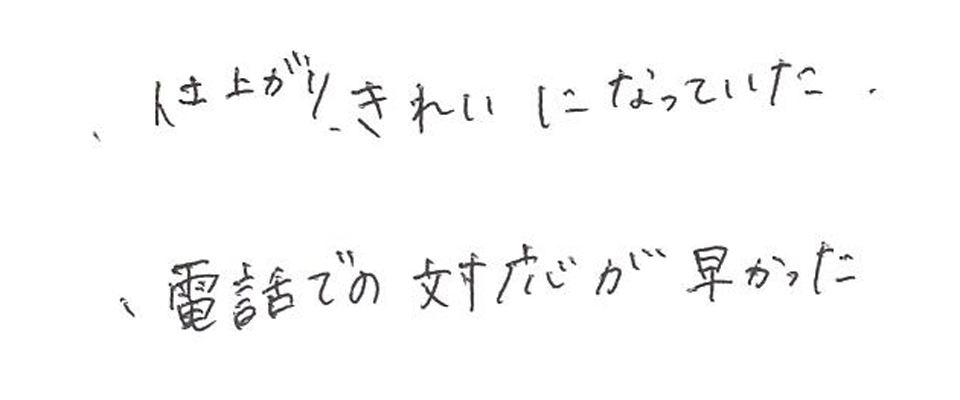 、仕上がり、きれいになっていた.
、電話での対応が早かった